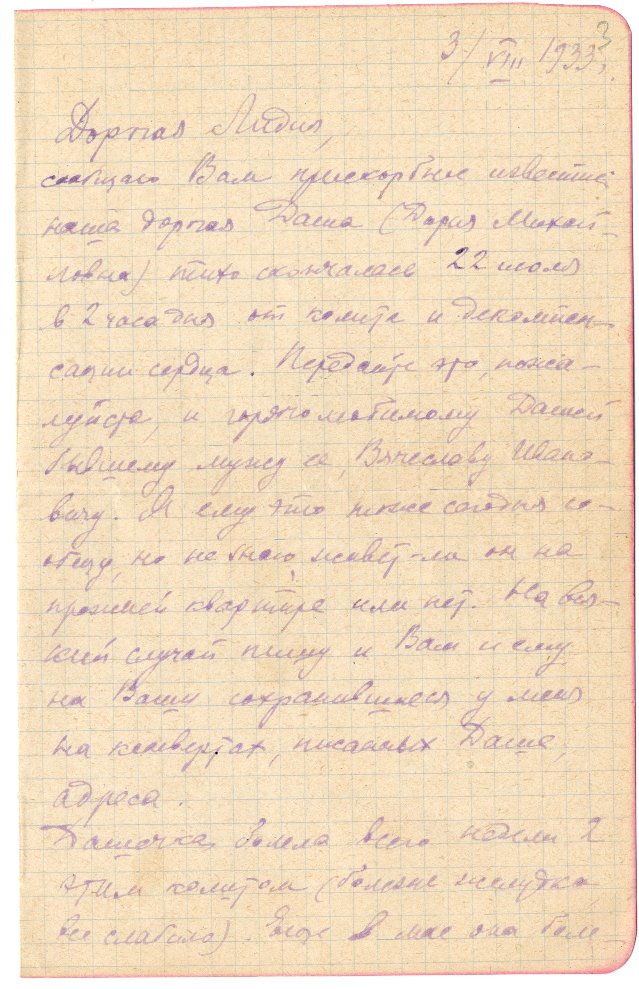 3/VIII 1933 г.
Дорогая Лидия,
сообщаю Вам прискорбное известие:
наша дорогая Даша (Дария Михай-
ловна) тихо скончалась 22 июля
в 2 часа дня от колита и декомпен-
сации сердца. Передайте это, пожа-
луйста, и горячо любимому Дашей
бывшему мужу ее, Вячеславу Ивано-
вичу. Я ему это тоже сегодня со-
общу, но не знаю, живет-ли он на
прежней квартире или нет. На вся-
кий случай пишу и Вам и ему
на Ваши сохранившиеся у меня
на конвертах, писанных Даше,
адреса.
Дашочка болела всего недели 2
этим колитом (болезнь желудка,
все слабило). Еще в мае она боле-